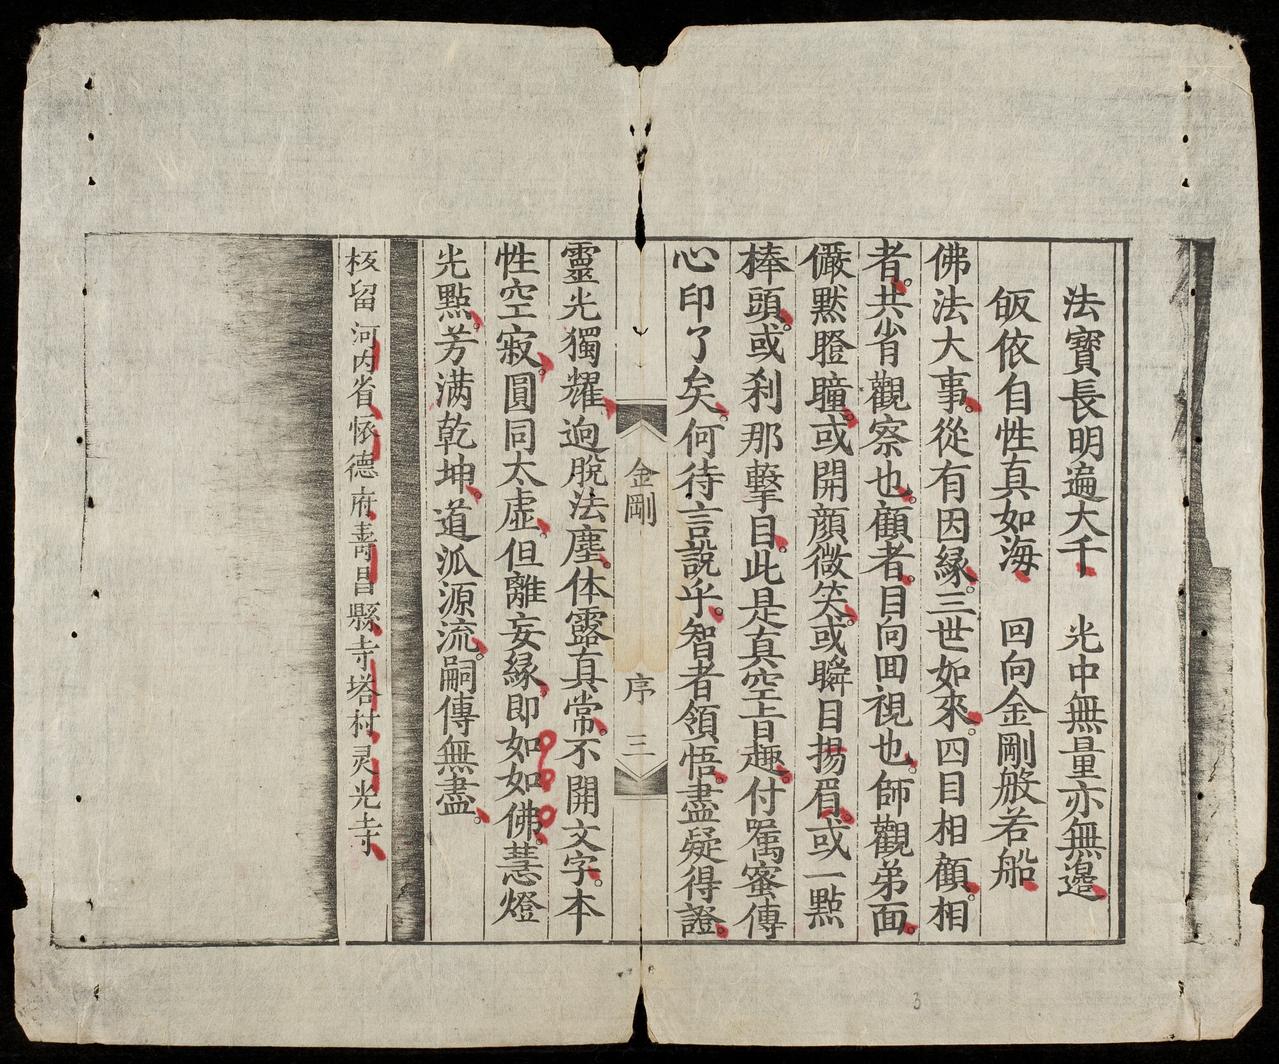 法寶長明遍大千　光中無量亦無邊
皈依自性真如海　回向金剛般若船
佛法大事。從有因緣。三世如來。四目相顧。相
者。共省觀察也。顧者。目向回視也。師觀弟面。
儼默瞪瞳。或開顏微笑。或瞬目揚眉。或一點
棒頭。或刹那擊目。此是真空旨趣。付囑蜜傳
心印了矣。何待言說乎。智者領悟。盡疑得證。
金剛　序　三
靈光獨耀。逈脫法塵。体露真常。不開文字。本
性空寂。圓同太虛。但離妄緣。即如如佛。慧燈
光點。芳満乾坤。道泒源流。嗣傳無盡。
板留河内省懷德府青昌縣寺塔村灵光寺
3